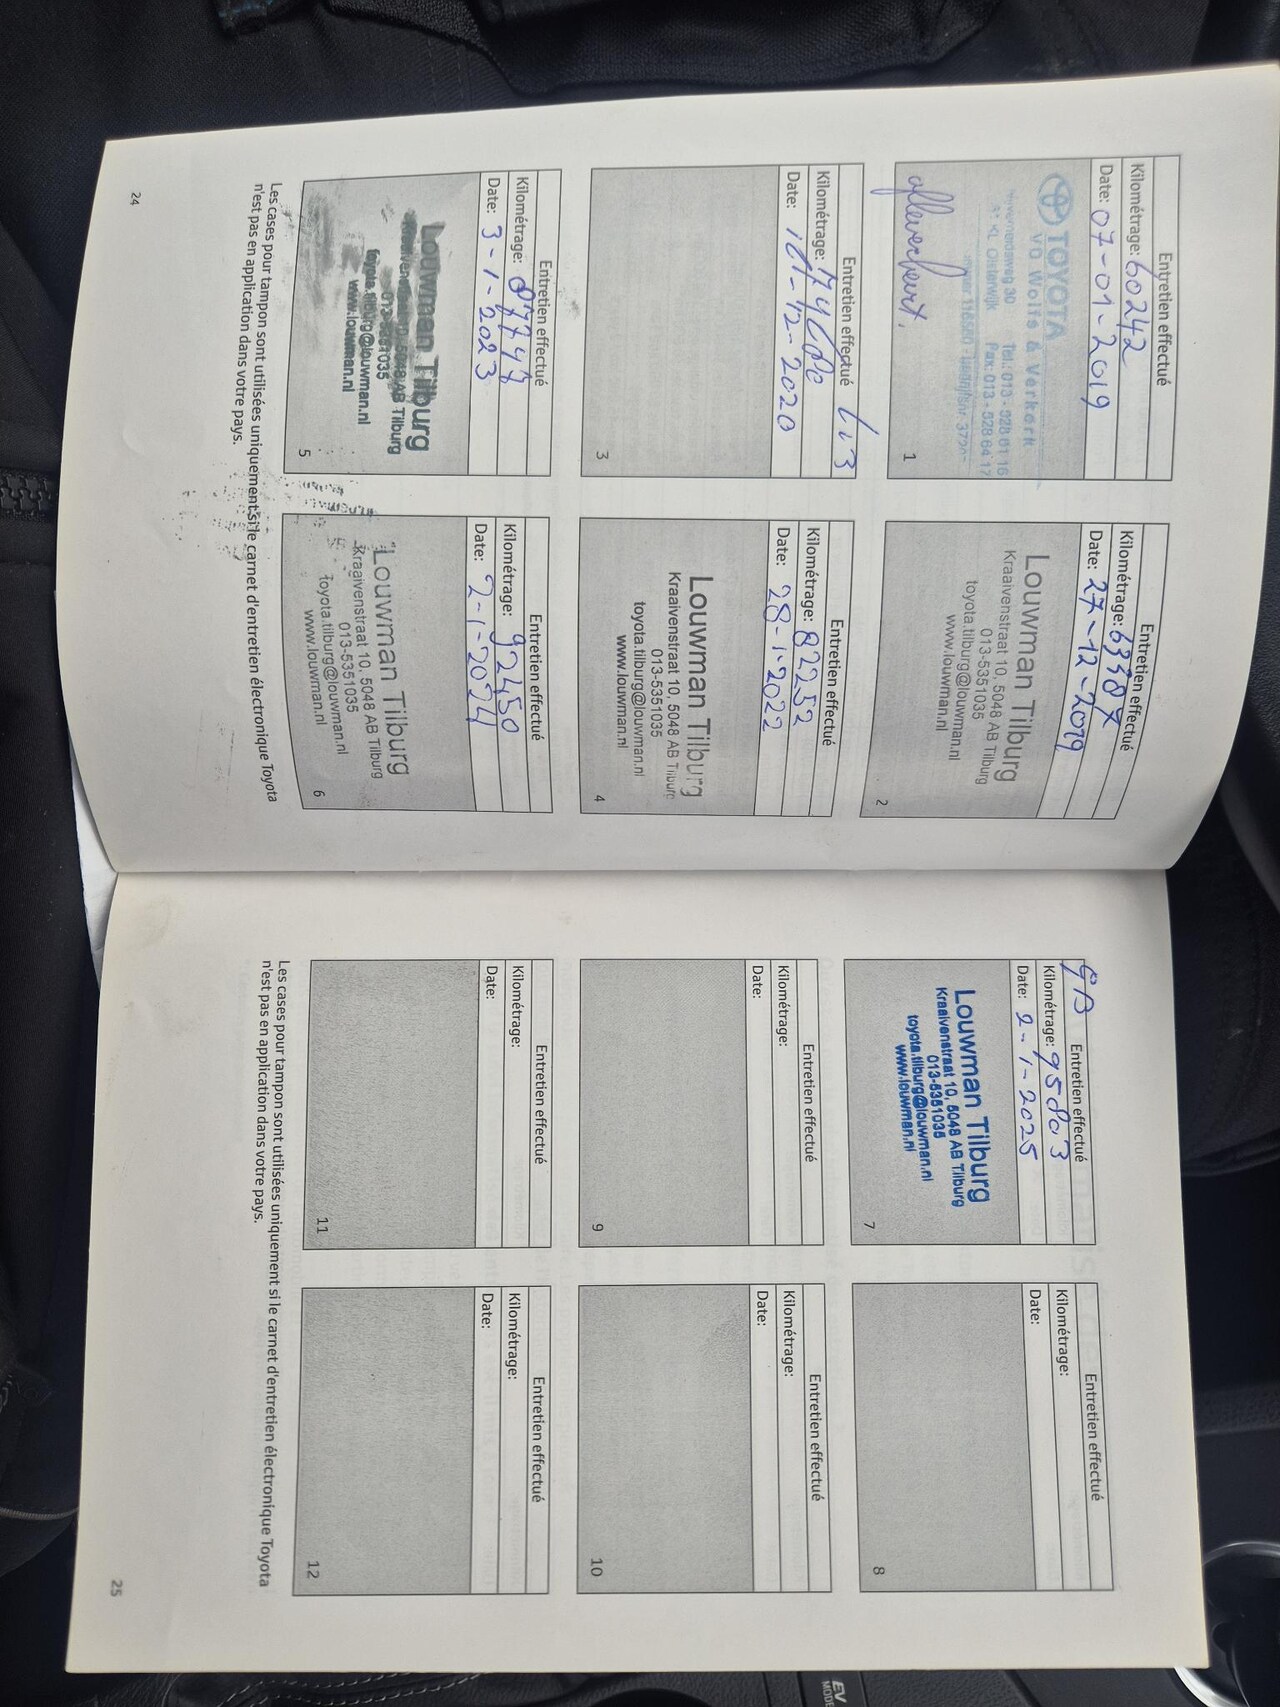 Entretien effectué
Kilométrage: 60242
Date: 07-01-2019
TOYOTA
VD Wolfs & Verkerk
30 Tel.: 013 - 528 81 16
KL Oisterwijk Fax: 013 - 528 64 17
afleverbeurt.
1
Entretien effectué
Kilométrage: 63387
Date: 27-12-2019
Louwman Tilburg
Kraaivenstraat 10, 5048 AB Tilburg
013-5351035
toyota.tilburg@louwman.nl
www.louwman.nl
2
Entretien effectué
Kilométrage:
Date: 12-2020
3
Entretien effectué
Kilométrage: 82252
Date: 28-1-2022
Louwman Tilburg
Kraaivenstraat 10, 5048 AB Tilburg
013-5351035
toyota.tilburg@louwman.nl
www.louwman.nl
4
Entretien effectué
Kilométrage: 87747
Date: 3-1-2023
Louwman Tilburg
Kraaivenstraat 10, 5048 AB Tilburg
013-5351035
toyota.tilburg@louwman.nl
www.louwman.nl
5
Entretien effectué
Kilométrage: 92450
Date: 2-1-2024
Louwman Tilburg
Kraaivenstraat 10, 5048 AB Tilburg
013-5351035
toyota.tilburg@louwman.nl
www.louwman.nl
6
Les cases pour tampon sont utilisées uniquement si le carnet d'entretien électronique Toyota
n'est pas en application dans votre pays.
24
Entretien effectué
Kilométrage: 95803
Date: 2-1-2025
Louwman Tilburg
Kraaivenstraat 10, 5048 AB Tilburg
013-5351035
toyota.tilburg@louwman.nl
www.louwman.nl
7
Entretien effectué
Kilométrage:
Date:
8
Entretien effectué
Kilométrage:
Date:
9
Entretien effectué
Kilométrage:
Date:
10
Entretien effectué
Kilométrage:
Date:
11
Entretien effectué
Kilométrage:
Date:
12
Les cases pour tampon sont utilisées uniquement si le carnet d'entretien électronique Toyota
n'est pas en application dans votre pays.
25
EV
MODE